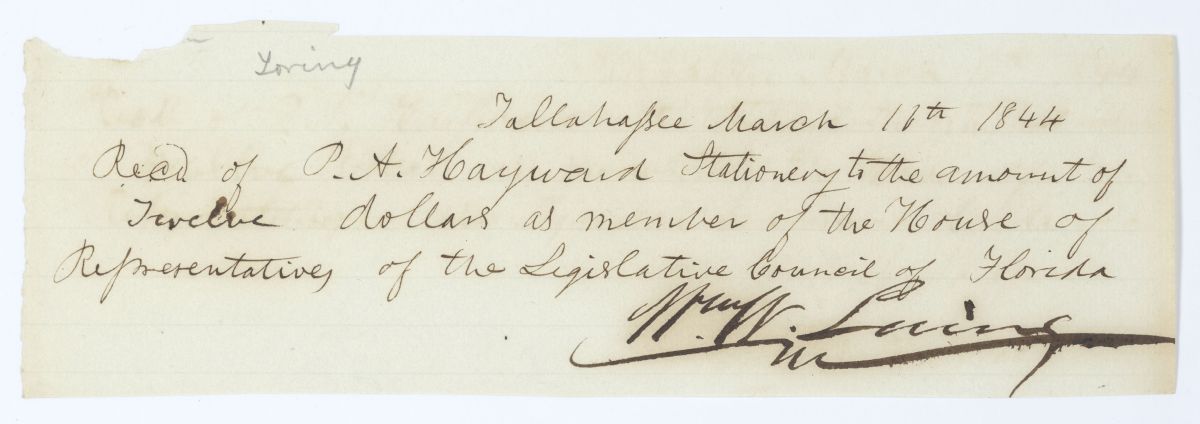 Loring
Tallahassee March 11th 1844
Recd of P. A. Hayward Stationery to the amount of
Twelve dollars as member of the House of
Representatives of the Legislative Council of Florida
Wm W. Loring